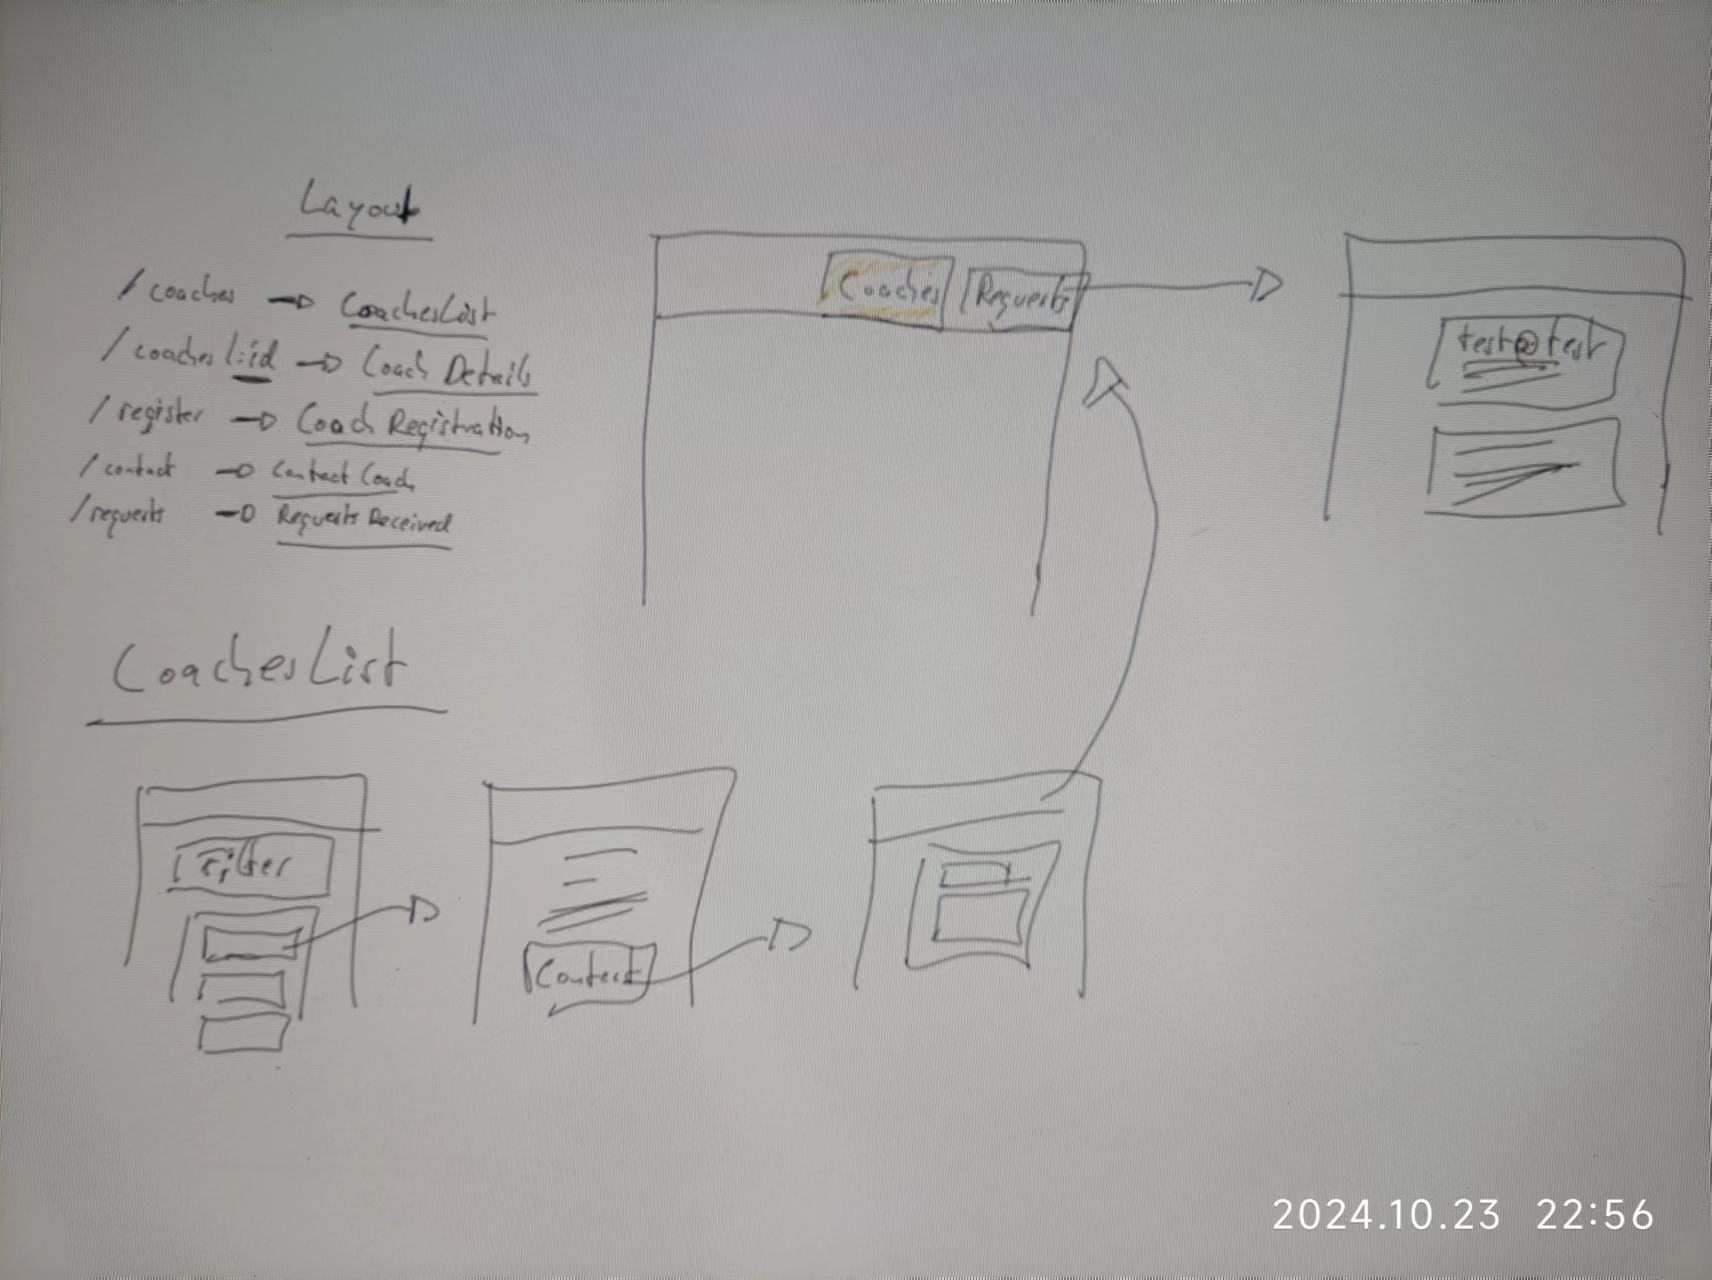 Layout
/coaches → CoachesList
/coaches/:id → Coach Details
/register → Coach Registration
/contact → Contact Coach
/requests → Requests Received
Coaches
Requests
test@test
CoachesList
Filter
Contact
2024.10.23 22:56